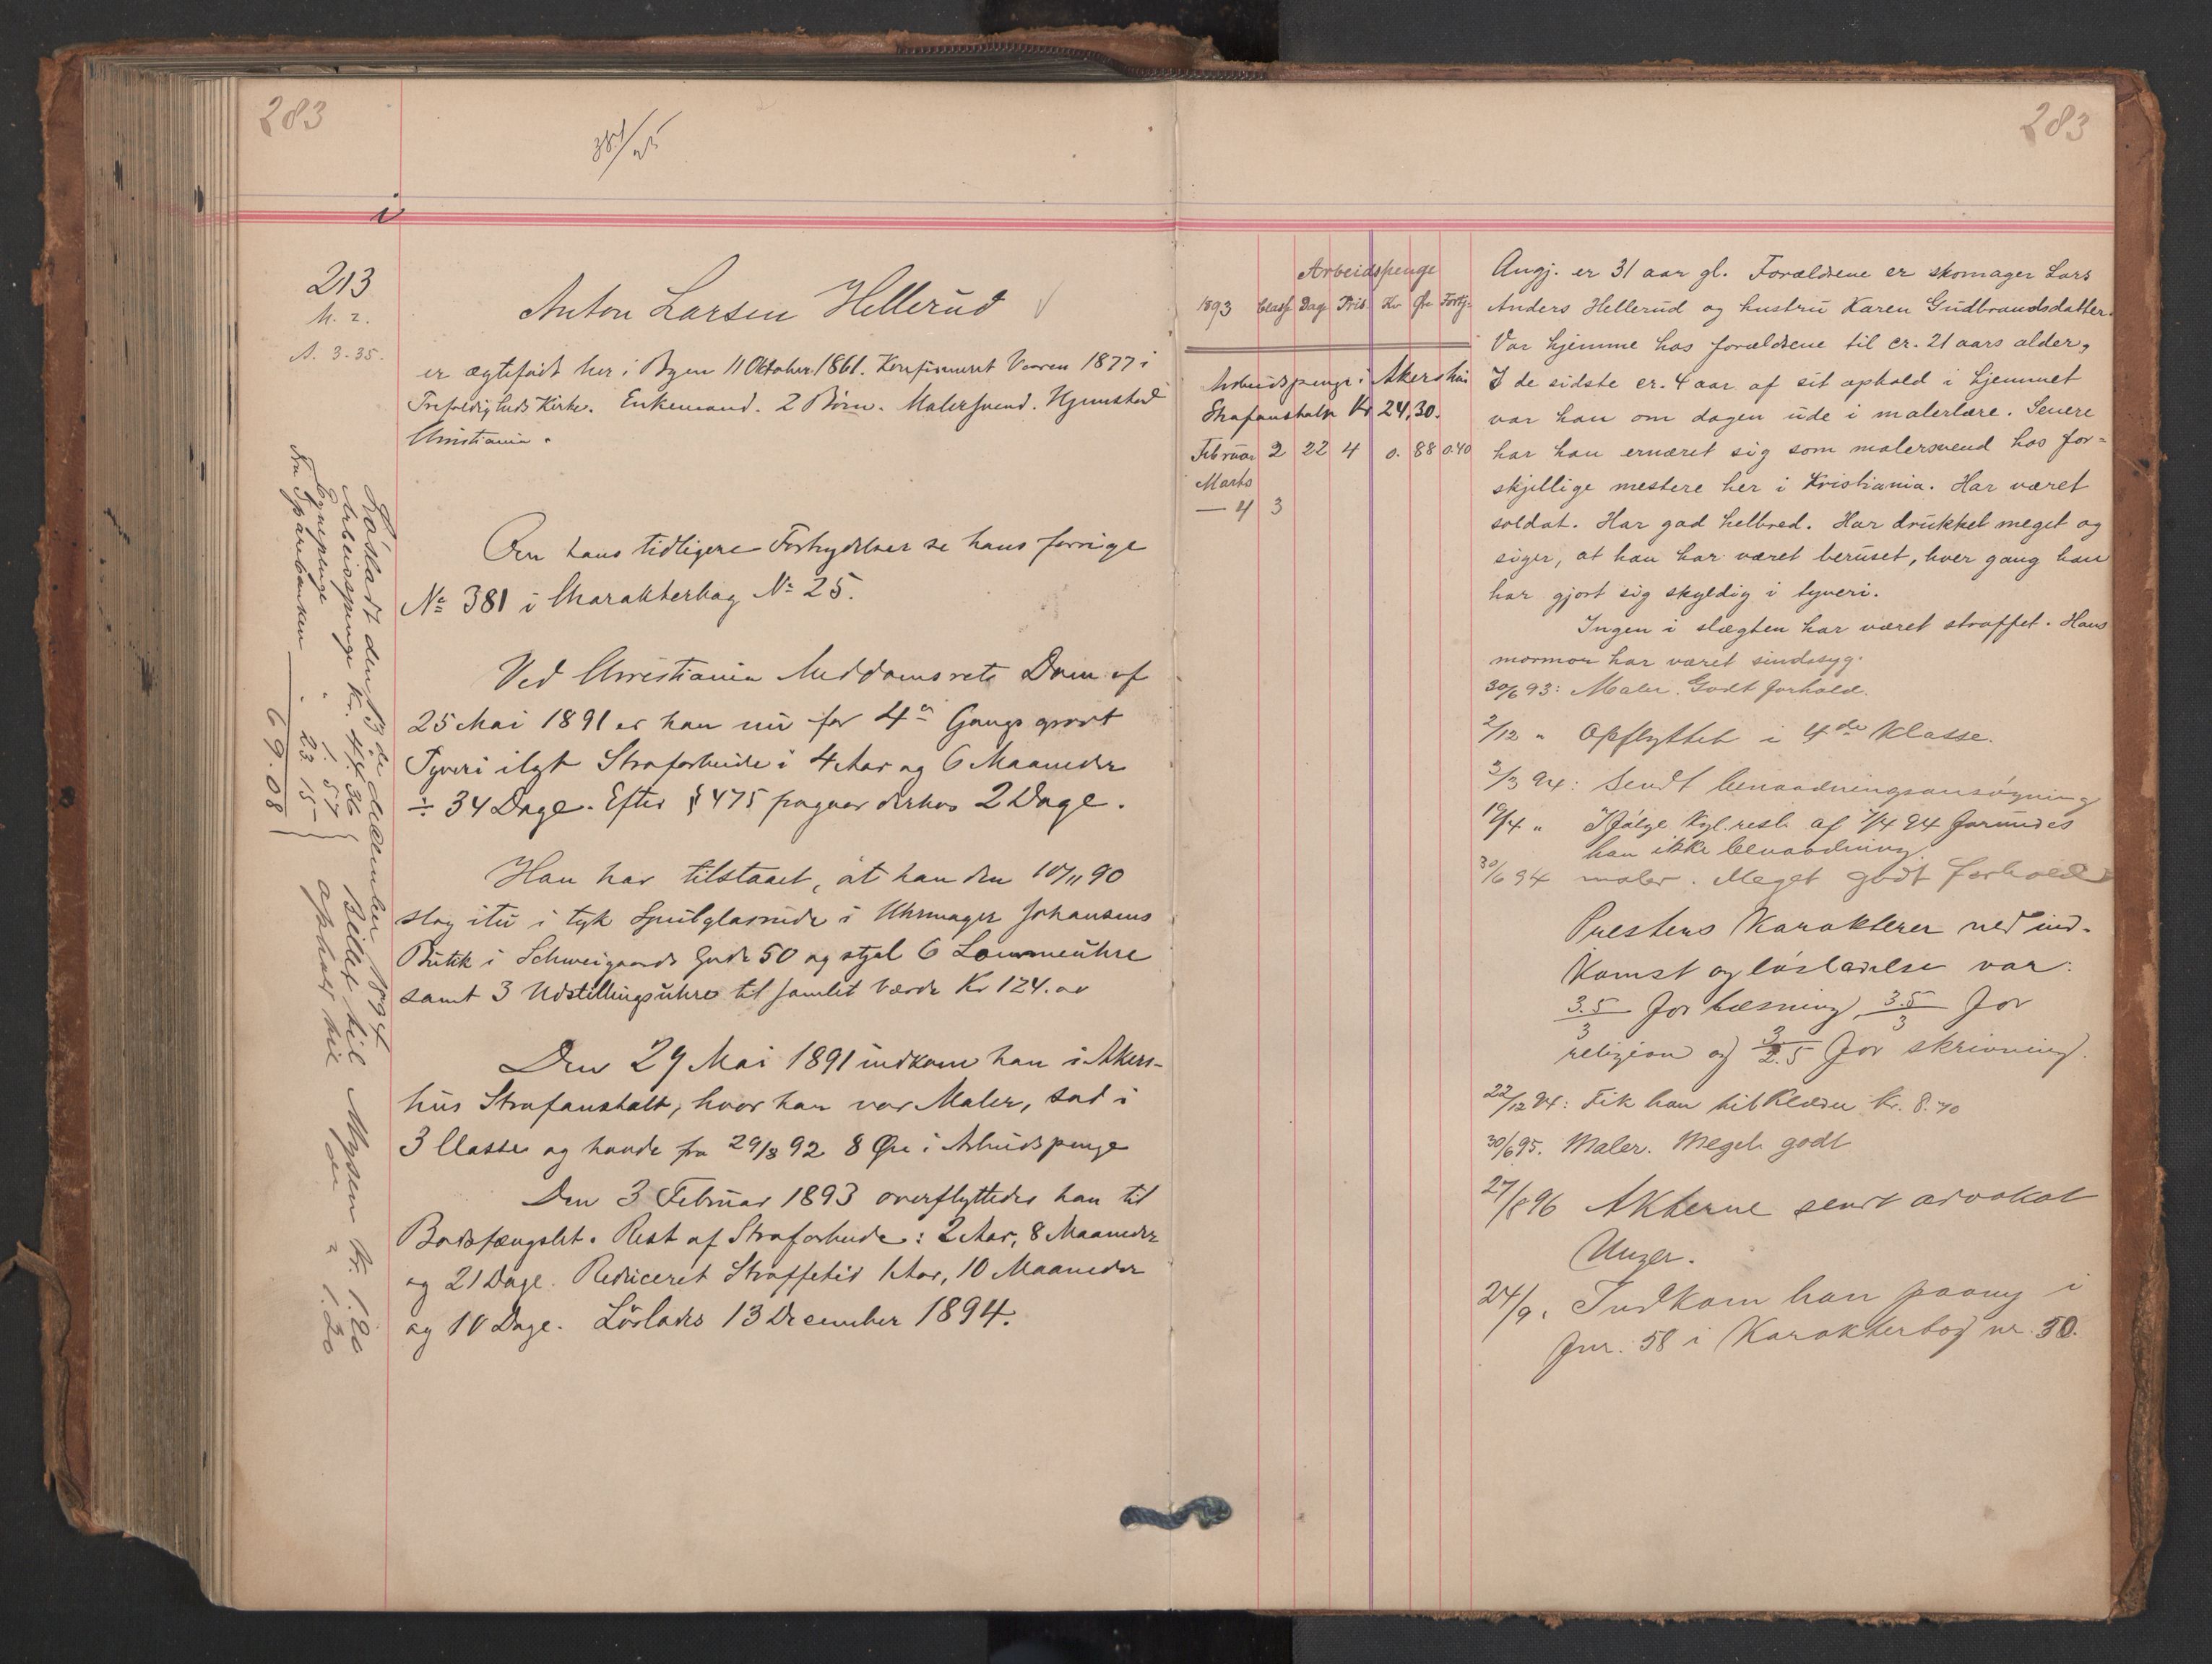 283
381/25
i
213
M. 2.
A. 3.35.
Anton Larsen Hellerud
er ægtefødt her i Byen 11 Oktober 1861. Konfirmeret Vaaren 1877 i
Trefoldigheds Kirke. Enkemand. 2 Børn. Malersvend. Hjemsted
Christiania.
Om hans tidligere Forbrydelser se hans forrige
No 381 i Charakterbog No 25.
Ved Christiania Meddomsrets Dom af
25 Mai 1891 er han nu for 4de Gangs grovt
Tyveri ilagt Strafarbeide i 4 Aar og 6 Maaneder
÷ 34 Dage. Efter § 475 fragaar derhos 2 Dage.
Han har tilstaaet, at han den 10/11 90
slog itu i tyk Speilglasrude i Uhrmager Johansens
Butik i Schweigaards Gade 50 og stjal 6 Lommeuhre
samt 3 Udstillingsuhre til samlet Værdi Kr 124.00
Den 29 Mai 1891 indkom han i Akers-
hus Strafanstalt, hvor han var Maler, sad i
3 Classe og havde fra 29/8 92 8 Øre i Arbeidspenge
Den 3 Februar 1893 overflyttedes han til
Bodsfængslet. Rest af Strafarbeide: 2 Aar, 8 Maaneder
og 21 Dage. Reduceret Straffetid 1 Aar, 10 Maaneder
og 10 Dage. Löslades 13 December 1894.
Lösladt den 13de december 1894
Arbeidspenge Kr. 44.36
Egnepenge " 1.57
Fra Sparebanken " 23.15
69.08
Billet til Mysen Kr. 1.80
Ophold til do " 1.20
283
Arbeidspenge
1893 Class Dage Pris Kr Øre Fortj.
Arbeidspenge i Akershus
Strafanstalt Kr 24,30.
Februar 2 22 4 0. 88 0.40
Marts
— 4 3
Angj. er 31 aar gl. Forældrene er skomager Lars
Anders Hellerud og hustru Karen Gudbrandsdatter.
Var hjemme hos forældrene til cr. 21 aars alder,
I de sidste cr. 4 aar af sit ophold i hjemmet
var han om dagen ude i malerlære. Senere
har han ernæret sig som malersvend hos for=
skjellige mestere her i Kristiania. Har været
soldat. Har god helbred. Har drukket meget og
siger, at han har været beruset, hver gang han
har gjort sig skyldig i tyveri.
Ingen i slægten har været straffet. Hans
mormor har været sindssyg.
30/6 93: Maler. Godt forhold.
2/12 " Opflyttet i 4de Klasse.
3/3 94: Sendt benaadningsansøgning
19/4 " Ifølge Kgl. resl. af 7/4 94 forundes
han ikke benaadning.
30/6 94 maler. Meget godt forhold
Prestens Karakterer ved ind-
komst og løsladelse var:
3.5/3 for læsning, 3.5/3 for
religion og 3/2.5 for skrivning.
22/12 94: Fik han til Klæder Kr. 8.70
30/6 95. Maler. Meget godt
27/8 96 Akterne sendt advokat
Unger.
24/9. Indkom han paany i
fnr. 58 i Karakterbog nr. 30.